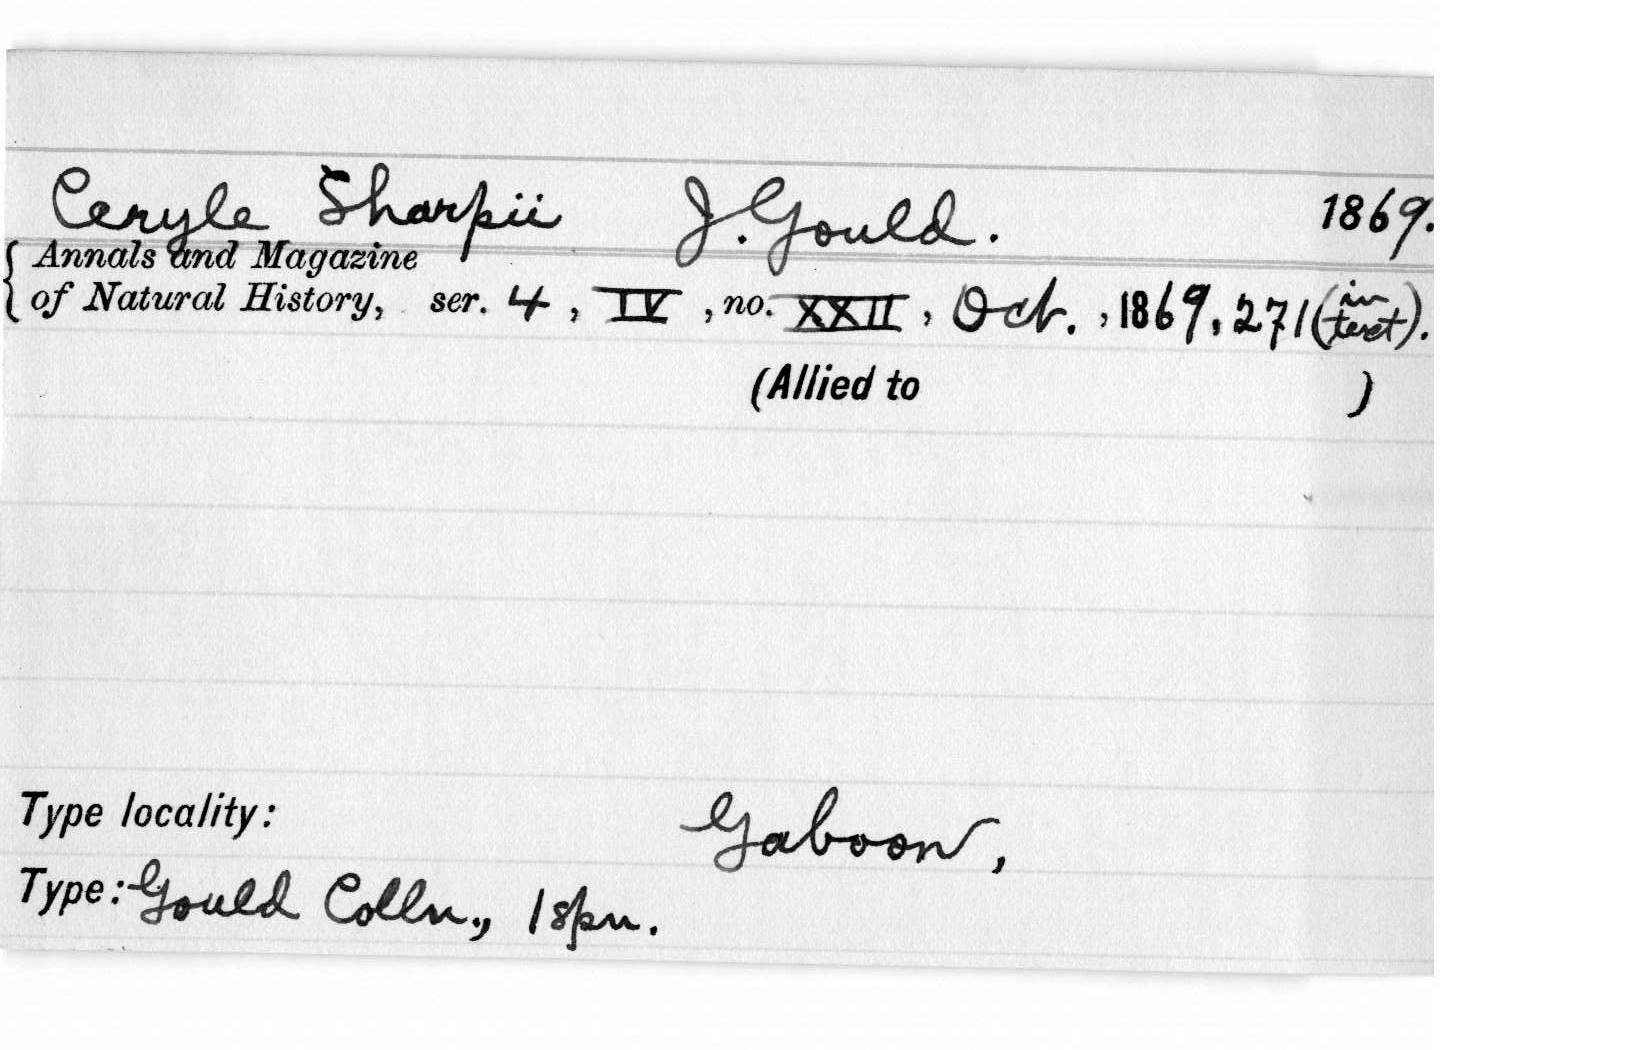 Ceryle Sharpii J. Gould. 1869.
Annals and Magazine
of Natural History, ser. 4, IV, no. XXII, Oct., 1869, 271 (in text).
(Allied to )
Type locality: Gaboon,
Type: Gould Colln., 1 spn.